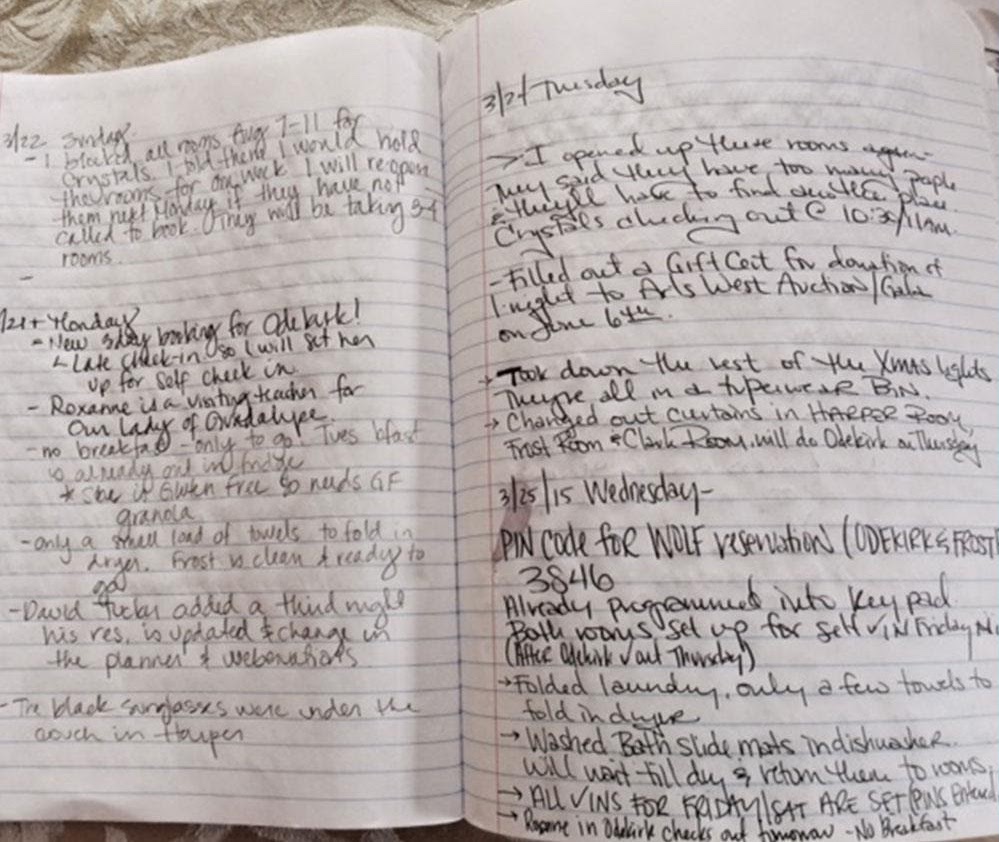 3/22 Sunday
- I blocked all rooms Aug 7-11 for
Crystals. I told them I would hold
the rooms for one week. I will reopen
them next Monday if they have not
called to book. They will be taking 3-4
rooms.
-
Monday
- New 3day booking for Odekirk!
↳ Late check-in so I will set her
up for self check in.
- Roxanne is a visiting teacher for
Our Lady of Guadalupe.
- no breakfast - only to go. Tues bfast
is already out in fridge
* She is Gluten free so needs GF
granola
- only a small load of towels to fold in
dryer. Frost is clean & ready to
go!
- David Tucker added a third night
his res. is updated & change in
the planner & webervations
- The black sunglasses were under the
couch in Harper
3/24 Tuesday
→ I opened up these rooms again-
They said they have too many people
& they'll have to find another place.
Crystals checking out @ 10:30/11am.
- Filled out a Gift Cert for donation of
1 night to Arts West Auction/Gala
on June 6th.
→ Took down the rest of the Xmas lights
They're all in a tuperwear BIN.
→ Changed out curtains in HARPER ROOM,
Frost Room & Clark Room, will do Odekirk on Thursday
3/25/15 Wednesday-
PIN Code for WOLF reservation (ODEKIRK & FROST)
3846
Already programmed into Key pad
Both rooms set up for self √ IN Friday
(After Odekirk √ out Thursday)
→ Folded laundry, only a few towels to
fold in dryer
→ Washed Bath slide mats in dishwasher.
Will wait till dry & return them to rooms.
→ ALL √ INS FOR FRIDAY/SAT ARE SET (PINS Entered
→ Roxanne in Odekirk checks out tomorrow - No Breakfast